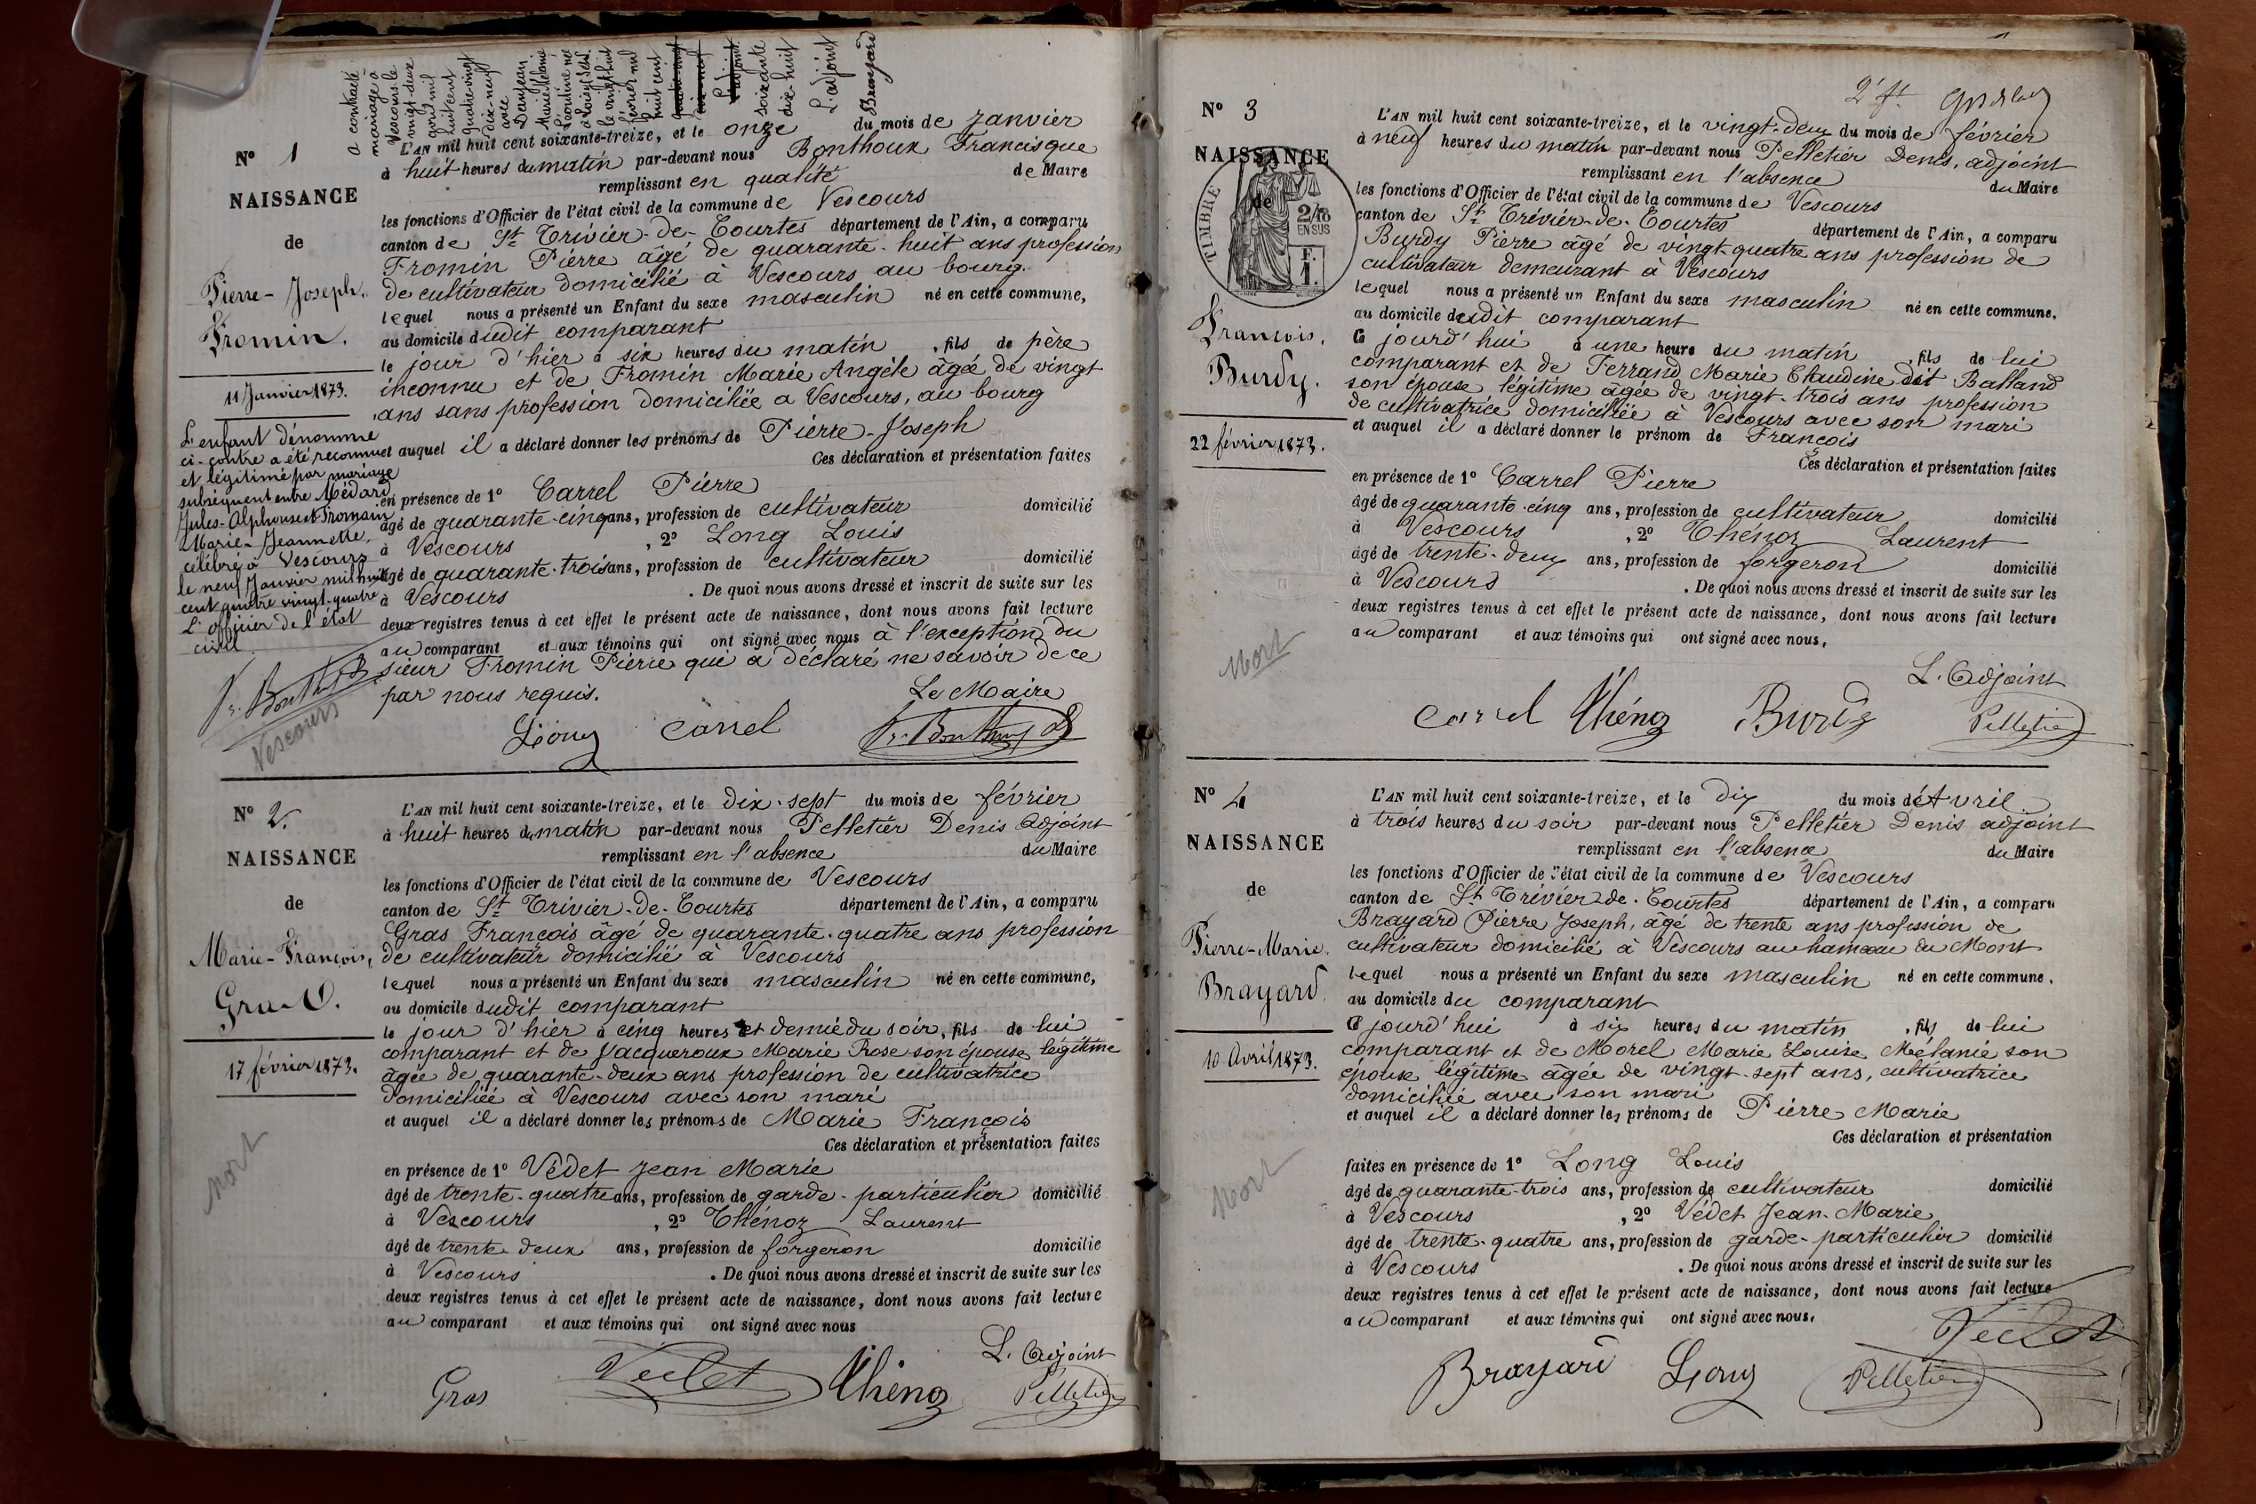 a contracté
mariage à
Vescours le
vingt-deux
août mil
huit cent
quatre vingt
dix-neuf
avec
Danjean
Marie Mélanie
Léontine née
à Loisy S. & L.
le vingt huit
février mil
huit cent
soixante
dix-huit
L'adjoint
Brayard
N° 1
NAISSANCE
de
Pierre-Joseph,
Fromin.
11 Janvier 1873.
L'enfant dénommé
ci-contre a été reconnu
et légitimé par mariage
subséquent entre Médard
Jules-Alphonse et Fromain
Marie-Jeannette,
célébré à Vescours
le neuf Janvier mil huit
cent quatre vingt-quatre
L'officier de l'état
civil
Vescours
L'AN mil huit cent soixante-treize, et le onze du mois de Janvier
à huit heures du matin par-devant nous Bonthoux Francisque
remplissant en qualité de Maire
les fonctions d'Officier de l'état civil de la commune de Vescours
canton de St Trivier-de-Courtes département de l'Ain, a comparu
Fromin Pierre âgé de quarante-huit ans profession
de cultivateur domicilié à Vescours au bourg.
lequel nous a présenté un Enfant du sexe masculin né en cette commune,
au domicile dudit comparant
le jour d'hier à six heures du matin, fils de père
inconnu et de Fromin Marie Angèle âgée de vingt
ans sans profession domiciliée à Vescours, au bourg
et auquel il a déclaré donner les prénoms de Pierre-Joseph
Ces déclaration et présentation faites
en présence de 1° Carrel Pierre
âgé de quarante-cinq ans, profession de cultivateur domicilié
à Vescours, 2° Long Louis
âgé de quarante-trois ans, profession de cultivateur domicilié
à Vescours. De quoi nous avons dressé et inscrit de suite sur les
deux registres tenus à cet effet le présent acte de naissance, dont nous avons fait lecture
au comparant et aux témoins qui ont signé avec nous à l'exception du
sieur Fromin Pierre qui a déclaré ne savoir de ce
par nous requis.
Le Maire
Long Carrel Fr. Bonthoux
N° 2.
NAISSANCE
de
Marie-François,
Gras.
17 février 1873.
Mort
L'AN mil huit cent soixante-treize, et le dix-sept du mois de février
à huit heures du matin par-devant nous Pelletier Denis adjoint
remplissant en l'absence du Maire
les fonctions d'Officier de l'état civil de la commune de Vescours
canton de St Trivier-de-Courtes département de l'Ain, a comparu
Gras François âgé de quarante-quatre ans profession
de cultivateur domicilié à Vescours
lequel nous a présenté un Enfant du sexe masculin né en cette commune,
au domicile dudit comparant
le jour d'hier à cinq heures et demie du soir, fils de lui
comparant et de Jacqueroux Marie Rose son épouse légitime
âgée de quarante-deux ans profession de cultivatrice
domiciliée à Vescours avec son mari
et auquel il a déclaré donner les prénoms de Marie François
Ces déclaration et présentation faites
en présence de 1° Védet Jean Marie
âgé de trente-quatre ans, profession de garde-particulier domicilié
à Vescours, 2° Thénoz Laurent
âgé de trente deux ans, profession de forgeron domicilié
à Vescours. De quoi nous avons dressé et inscrit de suite sur les
deux registres tenus à cet effet le présent acte de naissance, dont nous avons fait lecture
au comparant et aux témoins qui ont signé avec nous
L. Adjoint
Gras Védet Thénoz Pelletier
N° 3
NAISSANCE
de
TIMBRE
2/10
EN SUS
F.
1.
François,
Burdy.
22 février 1873.
Mort
L'AN mil huit cent soixante-treize, et le vingt-deux du mois de février
à neuf heures du matin par-devant nous Pelletier Denis, adjoint
remplissant en l'absence du Maire
les fonctions d'Officier de l'état civil de la commune de Vescours
canton de St Trivier-de-Courtes département de l'Ain, a comparu
Burdy Pierre âgé de vingt-quatre ans profession de
cultivateur demeurant à Vescours
lequel nous a présenté un Enfant du sexe masculin né en cette commune,
au domicile dudit comparant
Ce jourd'hui à une heure du matin, fils de lui
comparant et de Ferrand Marie Claudine dit Balland
son épouse légitime âgée de vingt-trois ans profession
de cultivatrice domiciliée à Vescours avec son mari
et auquel il a déclaré donner le prénom de François
Ces déclaration et présentation faites
en présence de 1° Carrel Pierre
âgé de quarante-cinq ans, profession de cultivateur domicilié
à Vescours, 2° Thénoz Laurent
âgé de trente-deux ans, profession de forgeron domicilié
à Vescours. De quoi nous avons dressé et inscrit de suite sur les
deux registres tenus à cet effet le présent acte de naissance, dont nous avons fait lecture
au comparant et aux témoins qui ont signé avec nous.
L. Adjoint
Carrel Thénoz Burdy Pelletier
N° 4
NAISSANCE
de
Pierre-Marie,
Brayard.
10 Avril 1873.
Mort
L'AN mil huit cent soixante-treize, et le dix du mois d'Avril
à trois heures du soir par-devant nous Pelletier Denis adjoint
remplissant en l'absence du Maire
les fonctions d'Officier de l'état civil de la commune de Vescours
canton de St Trivier-de-Courtes département de l'Ain, a comparu
Brayard Pierre Joseph, âgé de trente ans profession de
cultivateur domicilié à Vescours au hameau du Mont
lequel nous a présenté un Enfant du sexe masculin né en cette commune,
au domicile du comparant
Ce jourd'hui à six heures du matin, fils de lui
comparant et de Morel Marie Louise Mélanie son
épouse légitime âgée de vingt-sept ans, cultivatrice
domiciliée avec son mari
et auquel il a déclaré donner les prénoms de Pierre Marie
Ces déclaration et présentation
faites en présence de 1° Long Louis
âgé de quarante-trois ans, profession de cultivateur domicilié
à Vescours, 2° Védet Jean-Marie
âgé de trente-quatre ans, profession de garde-particulier domicilié
à Vescours. De quoi nous avons dressé et inscrit de suite sur les
deux registres tenus à cet effet le présent acte de naissance, dont nous avons fait lecture
au comparant et aux témoins qui ont signé avec nous.
Védet
Brayard Long Pelletier